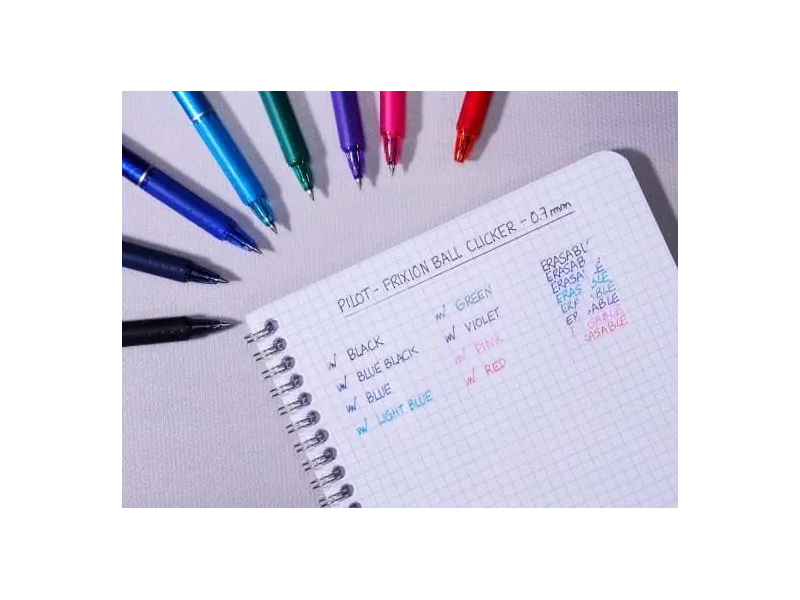 PILOT - FRIXION BALL CLICKER - 0.7mm
BLACK
BLUE BLACK
BLUE
LIGHT BLUE
GREEN
VIOLET
PINK
RED
ERASABL
ERASAB
ERASA
ERAS LE
ER BLE
ER ABLE
ABLE
ASABLE